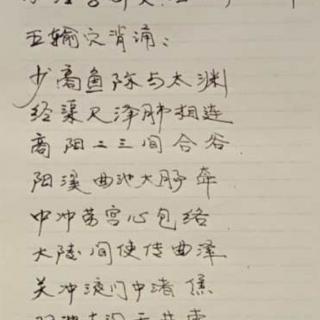 五输穴背诵：
少商鱼际与太渊
经渠尺泽肺相连
商阳二三间合谷
阳溪曲池大肠牵
中冲劳宫心包络
大陵间使传曲泽
关冲液门中渚焦